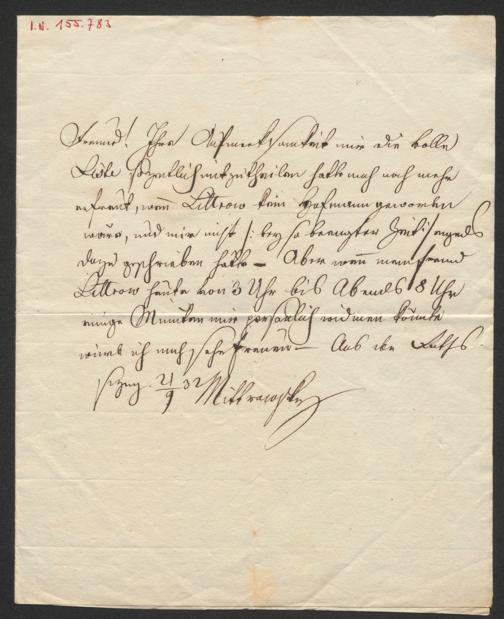 I.N. 155.783
Freund! Ihre Aufmerksamkeit mir die volle
Liste schriftlich mitzutheilen hätte mich noch mehr
erfreut, wenn Littrow kein Hofmann geworden
wäre, und mir nicht /: bey so beengter Zeit :/
dazu geschrieben hätte – Aber wenn mein Freund
Littrow heute von 3 Uhr bis Abends 8 Uhr
einige Minuten mir persönlich widmen könnte
würde ich mich sehr freuen – Aus der Raths
sizung. 21/9 32 Mittrowsky